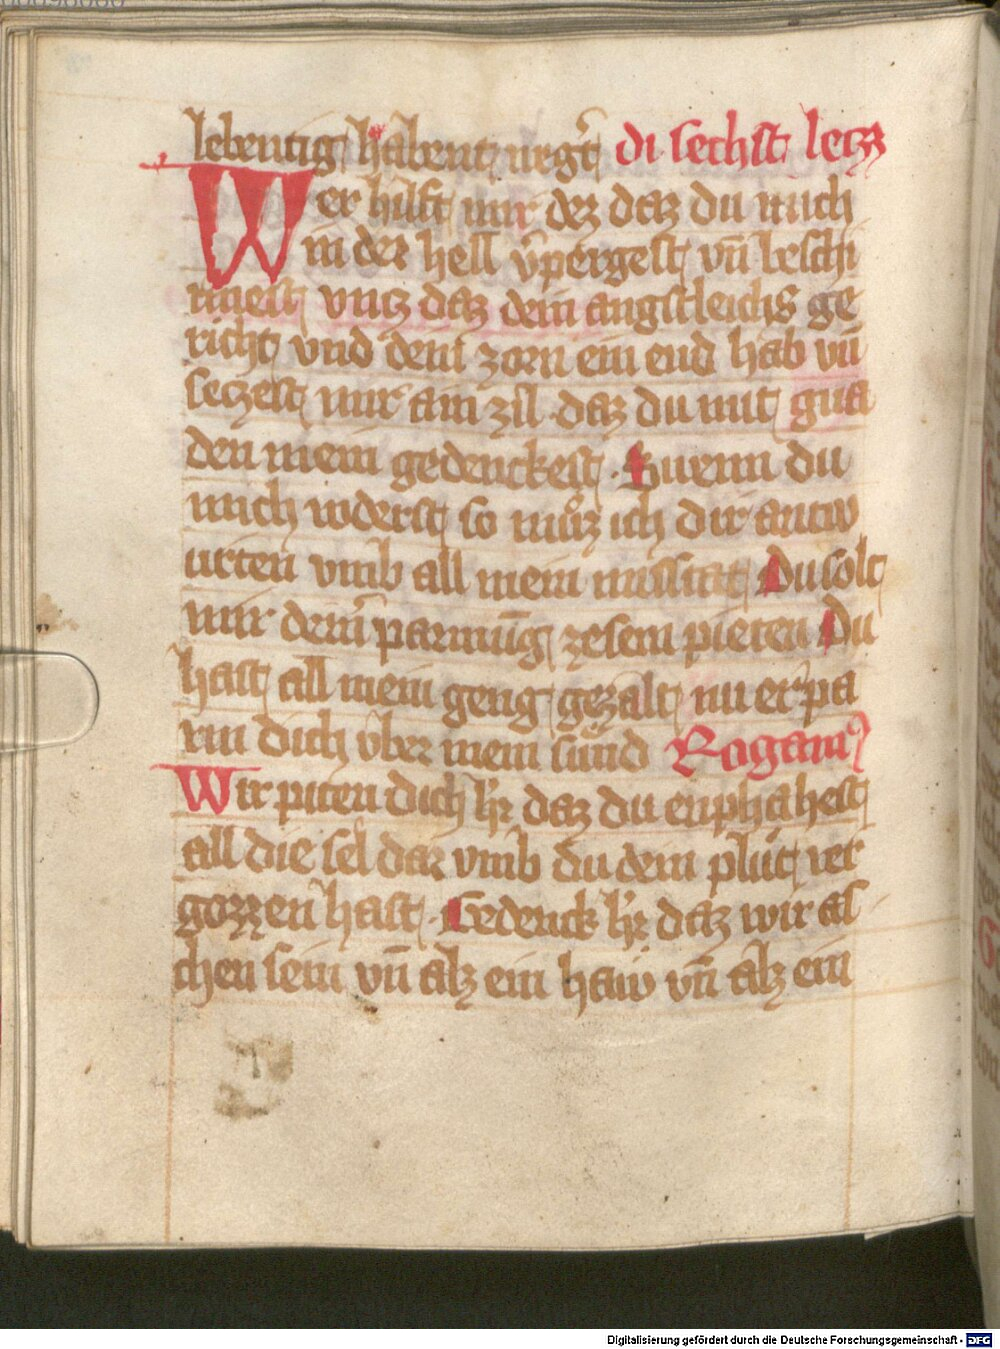 lebentig habent urgt̄ di sechst lecz
Wer hilft mir dez daz du mich
in der hell v̄pergest vn̄ beschi
rmest vncz daz dein angstleichs ge
richt vnd dein zorn ein end hab vn̄
seczest mir ain zil daz du mit gna
den mein gedenckest · Suenn du
mich voderst so muͦz ich dir antw
urten vmb all mein missitat Du solt
mir dein̄ parmūg zesem pieten Du
hast all mein geng gezalt nu erpa
rm dich vber mein sund Rogamꝰ
Wir piten dich h̄r daz du enphahest
all die sel dar vmb du dein plut ver
gozzen hast · Gedenck h̄r daz wir as
chen sein vn̄ alz ein haiv vn̄ alz ein
Digitalisierung gefördert durch die Deutsche Forschungsgemeinschaft - DFG